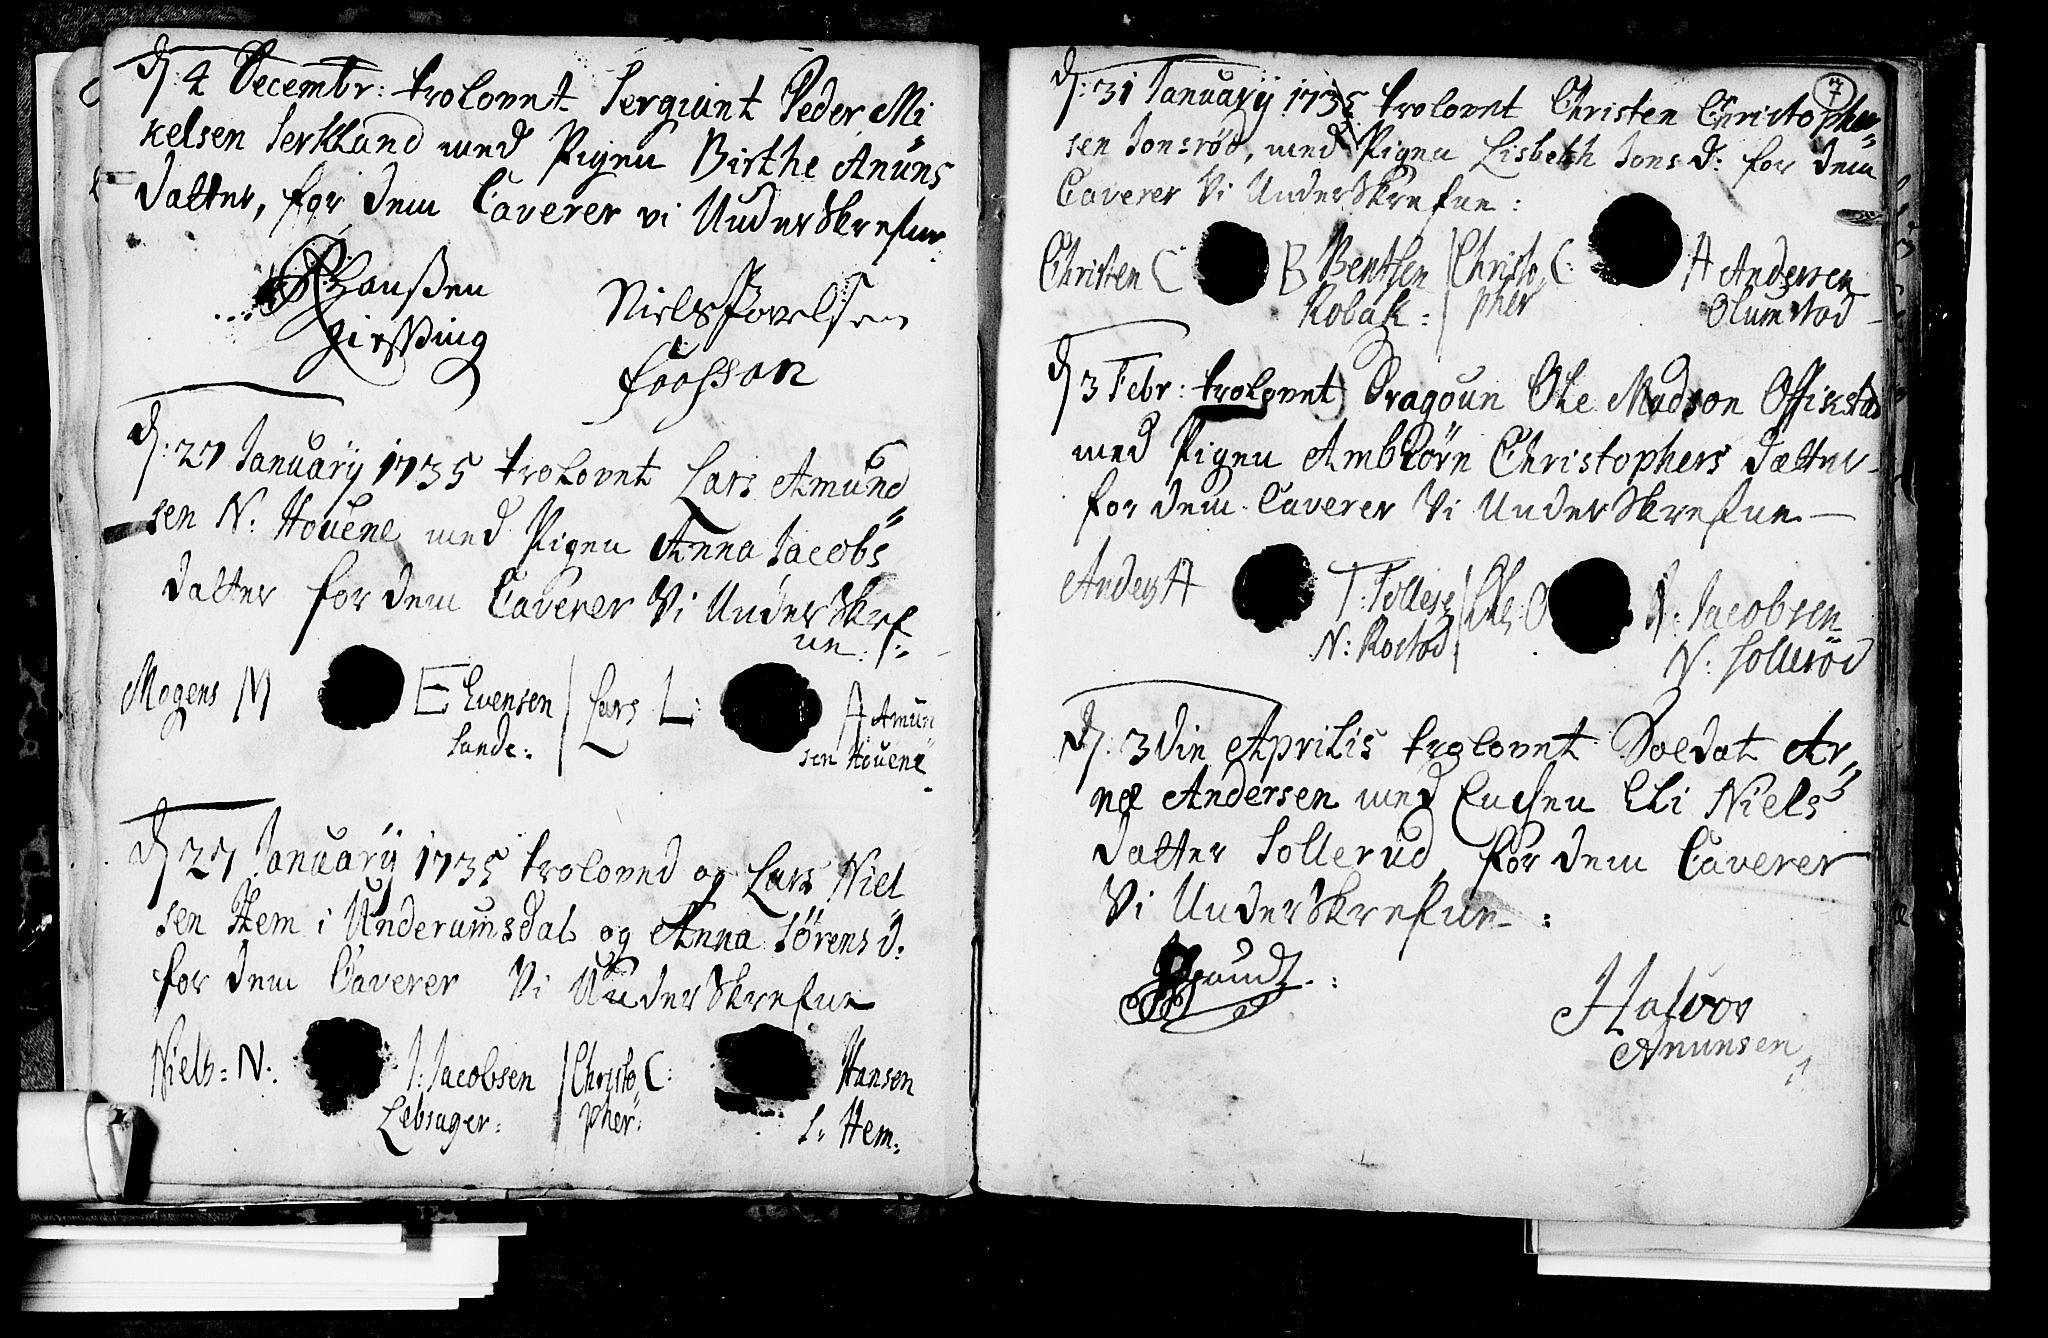 d: 4 Decembr: trolovet Sergiant Peder Mi
kelsen Serkland med Pigen Birthe Anuns
datter, for dem Caverer vi UnderSkrefne
Hanßen Niels Povelsen
Giessing
d: 27 January 1735 trolovet Lars Amund
sen N: Houene med Pigen Anna Jacobs
datter for dem Caverer Vi UnderSkref
ne:
Mogens M E Evensen / Lars L: A Amun
Sande: sen Houene
d 27 January 1735 troloved og Lars Niel
sen Hem i Underumsdal og Anna Sörens d:
for dem Caverer Vi UnderSkrefne
Niels: N: J: Jacobsen / Christo C: Hansen
Lebsager: pher: S: Hem:
7
d: 31 January 1735 trolovet Christen Christopher
sen Jonsröd, med Pigen Lisbeth Jons D: for dem
Caverer Vi UnderSkrefne:
Christen C B Bentsen / Christo C: A Andersen
Robak: pher Olumstad
d 3 Febr: trolovet Dragoun Ole Madson Offistad
med Pigen Ambiörn Christophers datter
for dem Caverer Vi UnderSkrefne
Anders A T: Tolless / Ole: O J: Jacobsen
N: Rostad N: Sollesöd
d: 3 din Aprilis trolovet Soldat Ar
ne Andersen med Enchen Eli Niels
datter Sollerud, for dem Caverer
Vi UnderSkrefne:
Halvor
Anunsen